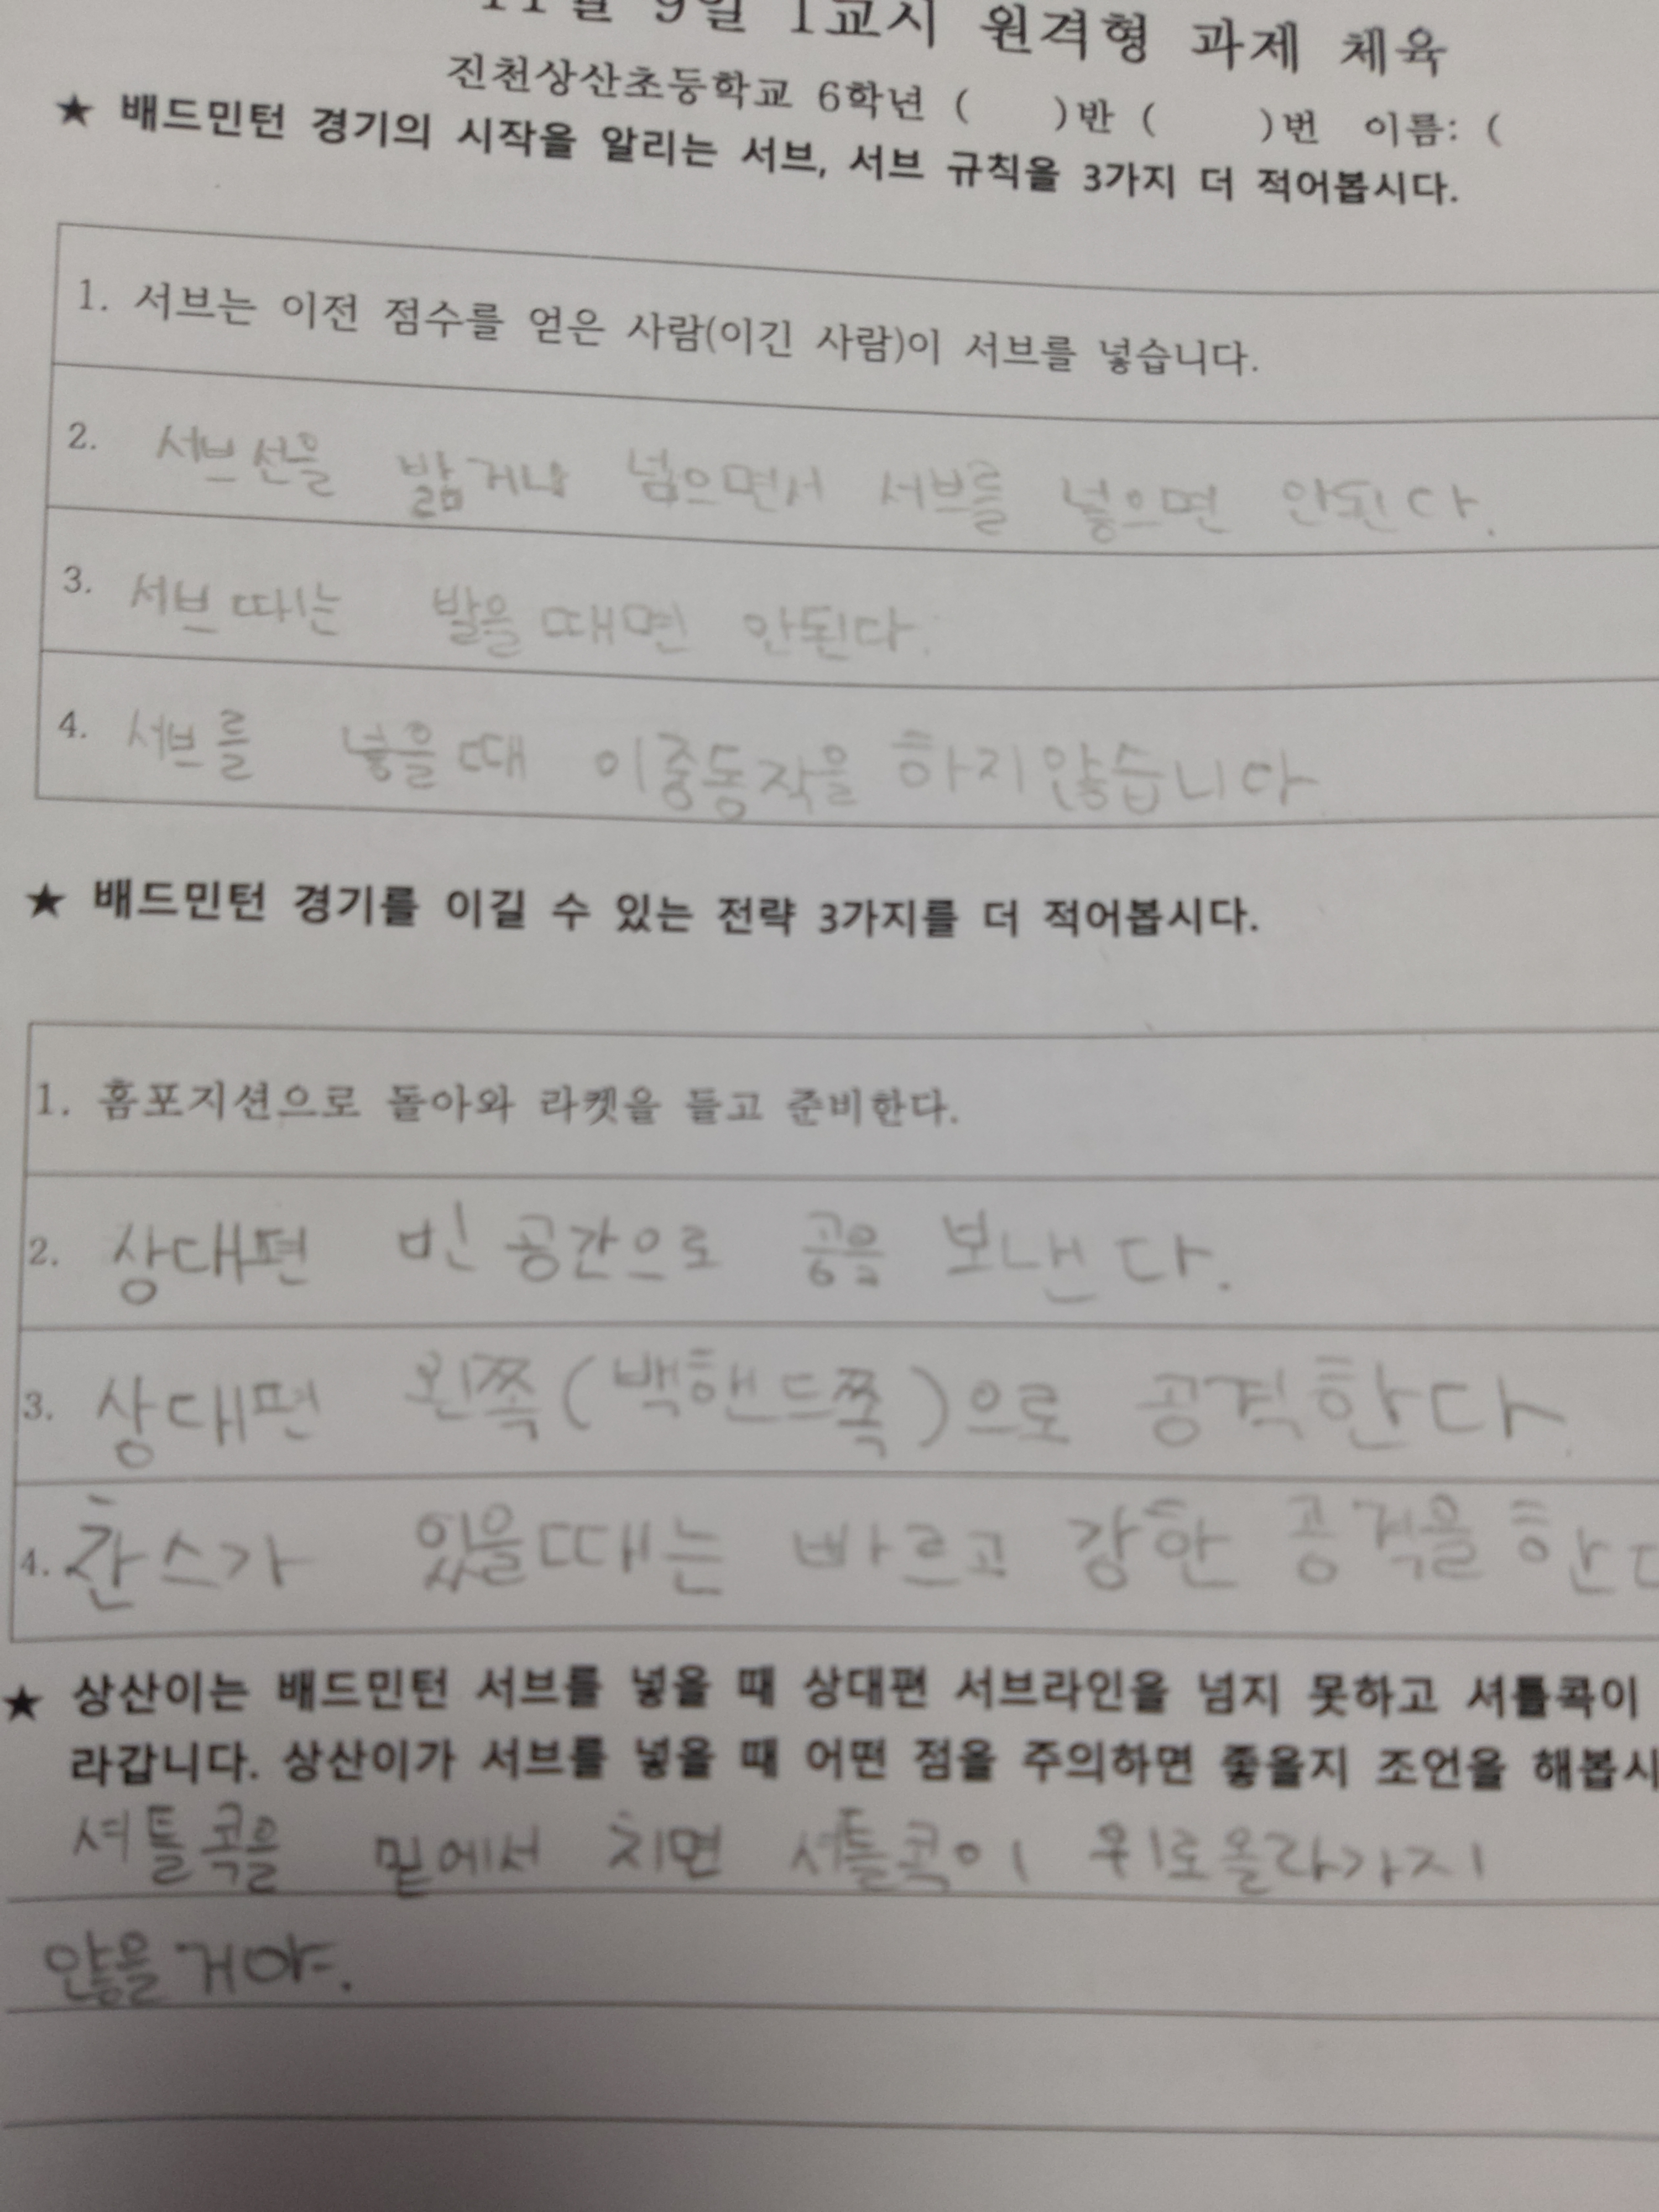 11월 9일 1교시 원격형 과제 체육
진천상산초등학교 6학년 (   )반 (   )번 이름: (
★ 배드민턴 경기의 시작을 알리는 서브, 서브 규칙을 3가지 더 적어봅시다.
1. 서브는 이전 점수를 얻은 사람(이긴 사람)이 서브를 넣습니다.
2. 서브선을 밟거나 넘으면서 서브를 넣으면 안된다.
3. 서브때는 발을 때면 안된다.
4. 서브를 넣을때 이중동작을 하지않습니다
★ 배드민턴 경기를 이길 수 있는 전략 3가지를 더 적어봅시다.
1. 홈포지션으로 돌아와 라켓을 들고 준비한다.
2. 상대편 빈 공간으로 공을 보낸다.
3. 상대편 왼쪽(백핸드쪽)으로 공격한다.
4. 찬스가 있을때는 빠르고 강한 공격을 한다
★ 상산이는 배드민턴 서브를 넣을 때 상대편 서브라인을 넘지 못하고 셔틀콕이
라갑니다. 상산이가 서브를 넣을 때 어떤 점을 주의하면 좋을지 조언을 해봅시
셔틀콕을 밑에서 치면 셔틀콕이 위로올라가지
않을거야.